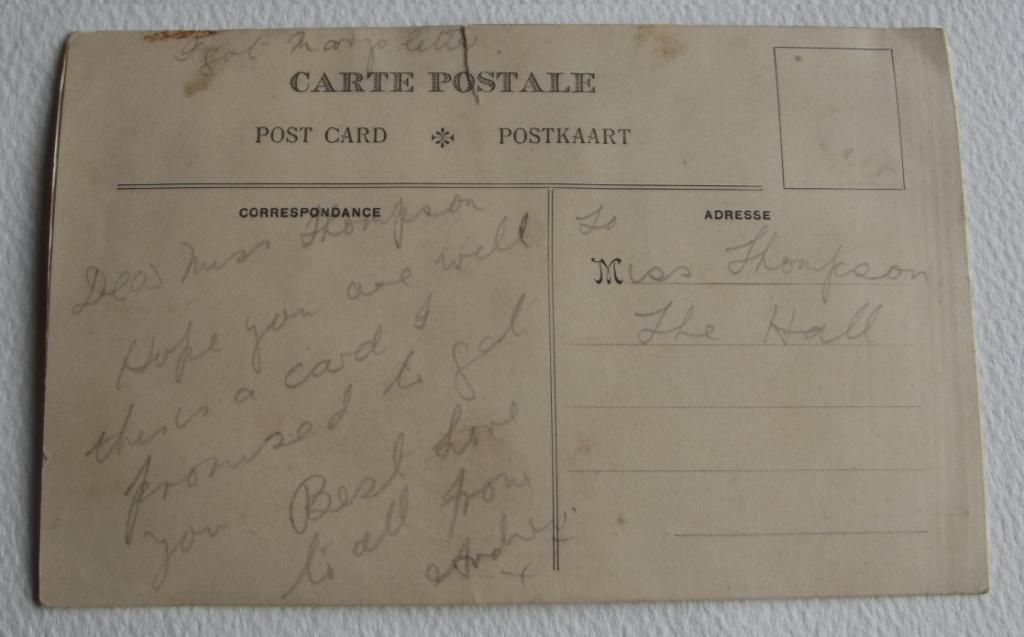 I got Marys letter.
CARTE POSTALE
POST CARD POSTKAART
CORRESPONDANCE
Dear Miss Thompson
Hope you are well
this is a card I
promised to get
you. Best Love
to all from
x
ADRESSE
To
Miss Thompson
The Hall